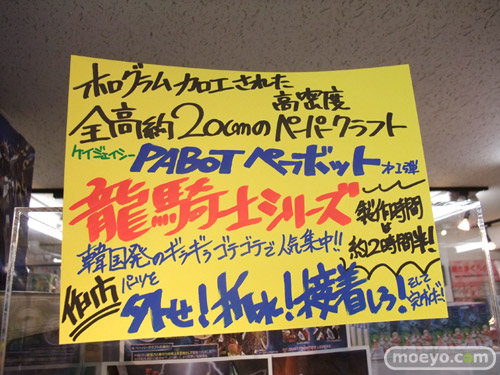 ホログラム加工された
高密度
全高約20cmのペーパークラフト
ケイジェイシー PABOT ペーパーボット オ1弾
龍騎士シリーズ
製作時間
は
約2時間半!
韓国発のギラギラゴテゴテで人気集中!!
但し パーツを
外せ!折れ!接着しろ!
そして
moeyo.com